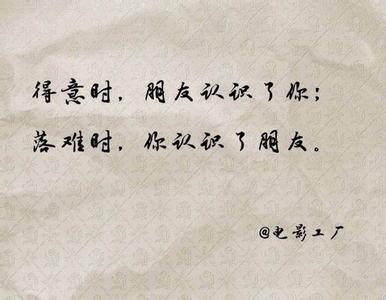 得意时，朋友认识了你；
落难时，你认识了朋友。
@电影工厂